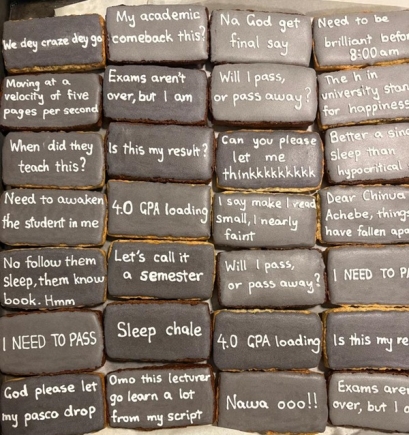 We dey craze dey go
My academic
comeback this?
Na God get
final say
Need to be
brilliant
8:00am
Moving at a
velocity of five
pages per second
Exams aren't
over, but I am
Will I pass,
or pass away?
The h in
university
for happiness
When did they
teach this?
Is this my result?
Can you please
let me
thinkkkkkkkkk
Better a
sleep than
hypocritical
Need to awaken
the student in me
4.0 GPA loading
I say make I read
small, I nearly
faint
Dear Chinua
Achebe,
have fallen
No follow them
sleep, them know
book. Hmm
Let's call it
a semester
Will I pass,
or pass away?
I NEED TO
I NEED TO PASS
Sleep chale
4.0 GPA loading
Is this my
God please let
my pasco drop
Omo this lecturer
go learn a lot
from my script
Nawa ooo!!
Exams
over, but I